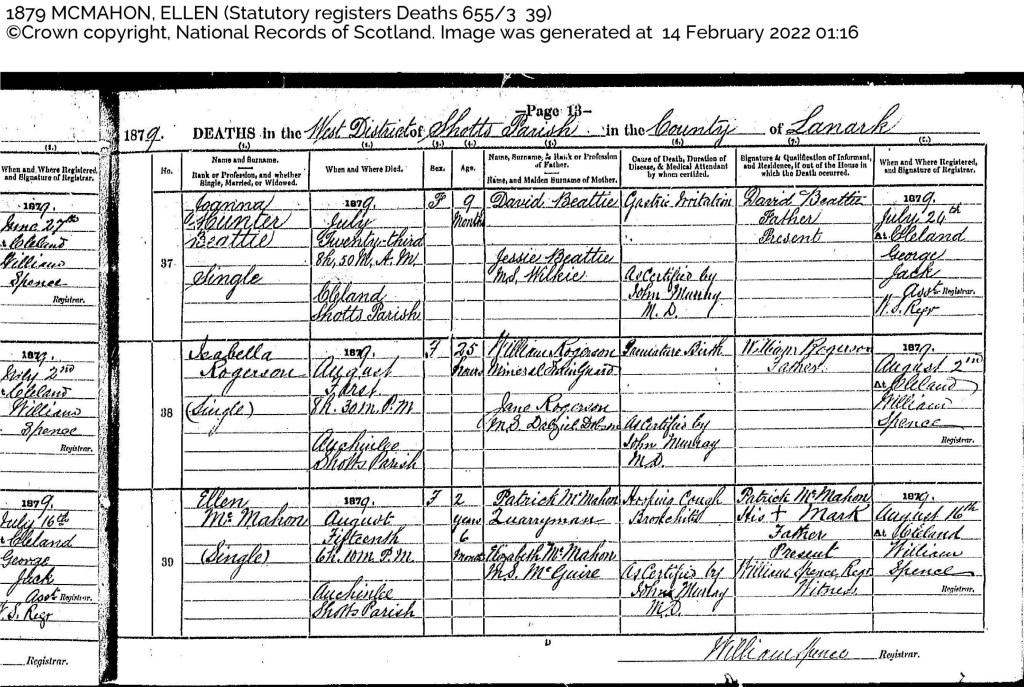 1879 MCMAHON, ELLEN (Statutory registers Deaths 655/3 39)
©Crown copyright, National Records of Scotland. Image was generated at 14 February 2022 01:16
—Page 13—
1879. DEATHS in the West District of Shotts Parish in the County of Lanark
(1.) (2.) (3.) (4.) (5.) (6.) (7.) (8.)
No.
Name and Surname.
Rank or Profession, and whether
Single, Married, or Widowed.
When and Where Died.
Sex.
Age.
Name, Surname, & Rank or Profession
of Father.
Name, and Maiden Surname of Mother.
Cause of Death, Duration of
Disease, & Medical Attendant
by whom certified.
Signature & Qualification of Informant,
and Residence, if out of the House in
which the Death occurred.
When and Where Registered,
and Signature of Registrar.
37
Joanna
Hunter
Beattie
Single
1879.
July
Twenty-third
8h. 50 M. A.M.
Cleland
Shotts Parish
F
9
Months
David Beattie
Jessie Beattie
M.S. Wilkie
Gastric Irritation
As Certified by
John Murray
M.D.
David Beattie
Father
Present
1879.
July 24th
At Cleland
George
Jack
Asst Registrar.
W.S. Regr
38
Isabella
Rogerson
(Single)
1879.
August
First
8h. 30 m. P.M.
Auchinlee
Shotts Parish
F
25
hours
William Rogerson
Mineral Train Guard
Jane Rogerson
M.S. Dalziel
Premature Birth
As Certified by
John Murray
M.D.
William Rogerson
Father
1879.
August 2nd
At Cleland
William
Spence
Registrar.
39
Ellen
McMahon
(Single)
1879.
August
Fifteenth
6h. 10m P.M.
Auchinlee
Shotts Parish
F
2
years
6
months
Patrick McMahon
Quarryman
Elizabeth McMahon
M.S. McGuire
Hooping Cough
Bronchitis
As Certified by
John Murray
M.D.
Patrick McMahon
His + Mark
Father
Present
William Spence, Regr
Witness
1879.
August 16th
At Cleland
William
Spence
Registrar.
D
William Spence Registrar.
(8.)
When and Where Registered,
and Signature of Registrar.
1879.
June 27th
At Cleland
William
Spence
Registrar.
1879.
July 2nd
Cleland
William
Spence
Registrar.
1879.
July 16th
Cleland
George
Jack
Asst Registrar.
W.S. Regr
Registrar.